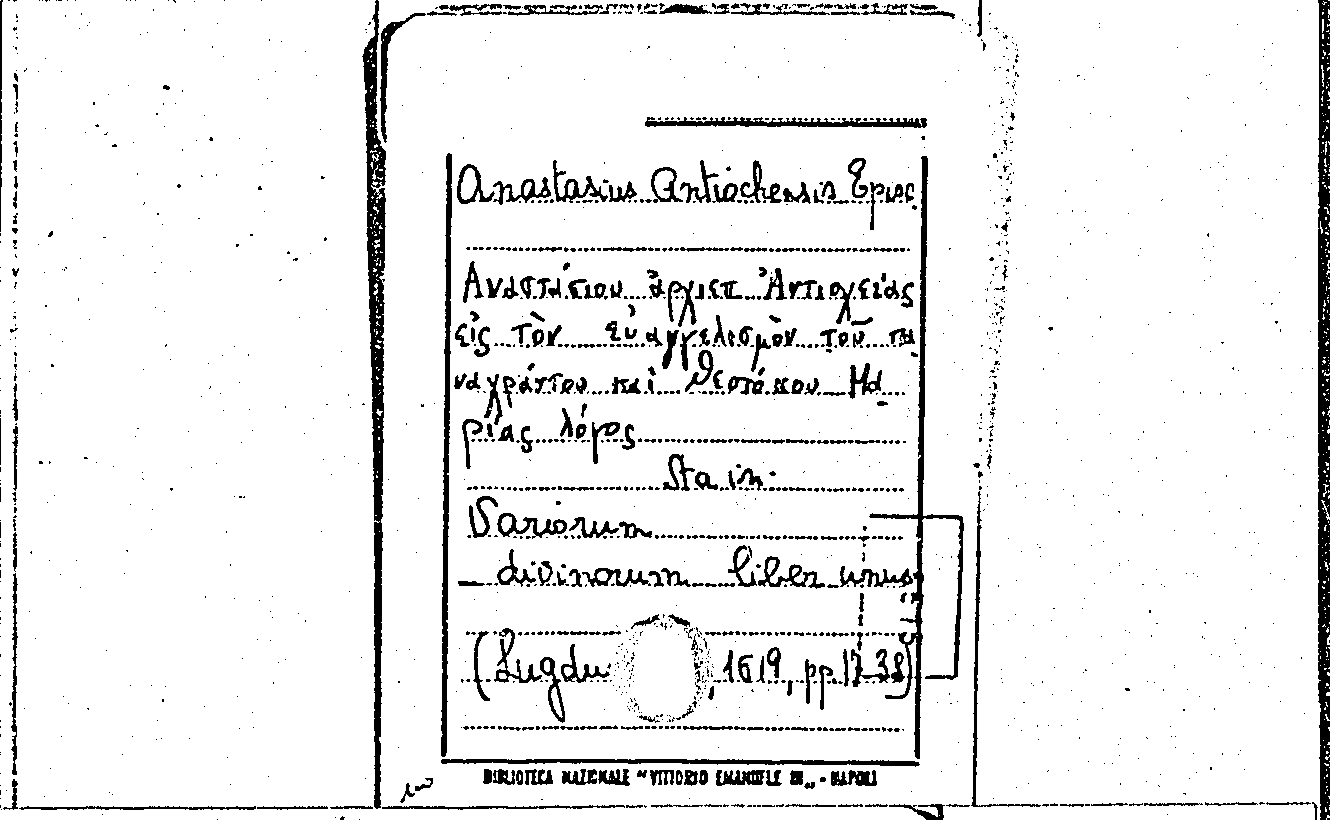 Anastasius Antiochensis Episc.
Αναστάσιου ἀρχιεπ Ἀντιοχείας
εἰς τὸν εὐαγγελισμὸν τοῦ πα
ναχράντου καὶ θεοτόκου Μα
ρίας λόγος
Sta in:
Variorum
divinorum liber unus
(Lugdu , 1619, pp 17-38)
BIBLIOTECA NAZIONALE "VITTORIO EMANUELE III„ - NAPOLI